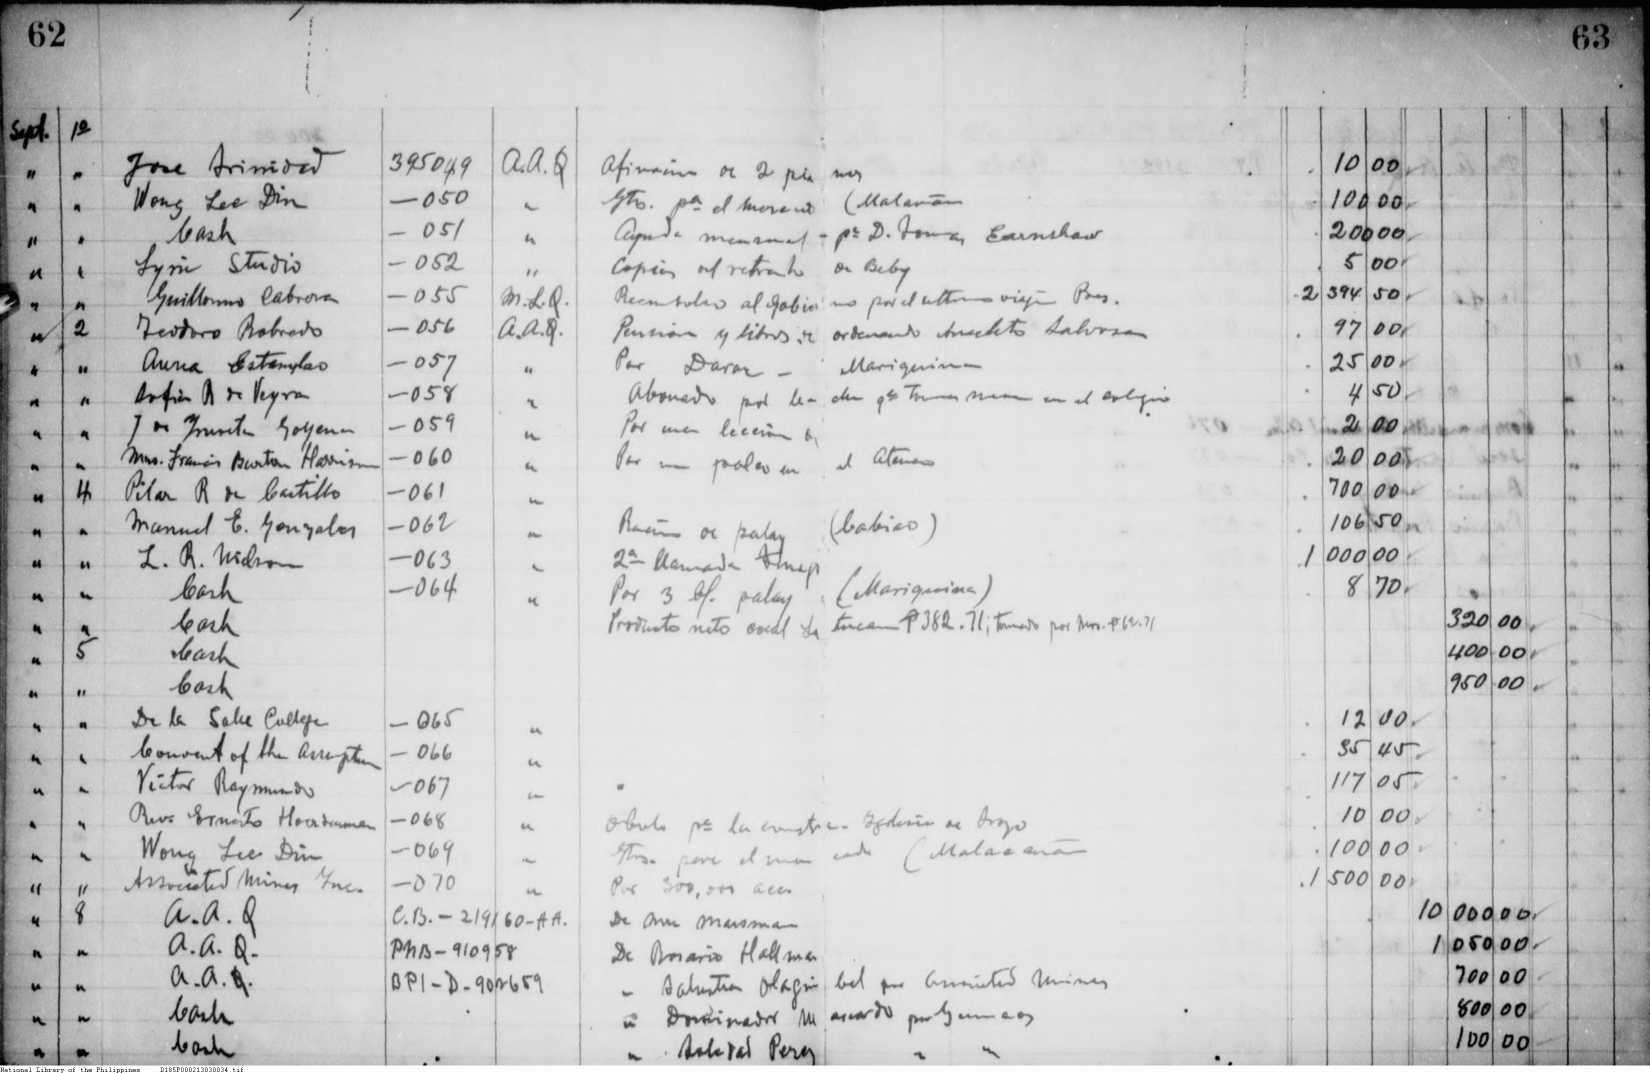 62 63
Sept. 1º
" " Jose Trinidad 395049 A.A.Q Afinacion de 2 pianos 10 00
" " Wong Lee Din —050 " Gtos. pª el mercado (Malacañan 100 00
" " Cash —051 " Ayuda mensual - pª D. Tomas Earnshaw 200 00
" " Lyric Studio —052 " Copias del retrato de Baby 5 00
" " Guillermo Cabrera —055 M.L.Q. Reembolso al Gobierno por el ultimo viaje Pres. 2 394 50
" 2 Teodoro Robredo —056 A.A.Q. Pension y libros de ordenando Anacleto 97 00
" " Aurea Estanislao —057 " Por Darac - Mariquina 25 00
" " Sofia R de Veyra —058 " Abonado por leche qe toma nene en el colegio 4 50
" " J de Goyena —059 " Por una leccion de 2 00
" " Mrs. Francis Burton Harrison —060 " Por un palco en el Ateneo 20 00
" 4 Pilar R de Castillo —061 " 700 00
" " Manuel E. Gonzales —062 " de palay (Cabiao) 106 50
" " L. R. Nielson —063 " 2ª llamada 1 000 00
" " Cash —064 " Por 3 palay (Mariquina) 8 70
" " Cash Producto neto ₱382.71; tomado por Mrs. ₱62.71 320 00
" 5 Cash 400 00
" " Cash 950 00
" " De la Salle College —065 " 12 00
" " Convent of the Assumption —066 " 35 45
" " Victor Raymundo —067 " 117 05
" " Rev. Ernesto —068 " Obolo pª la Iglesia de 10 00
" " Wong Lee Din —069 " Gtos. para el mercado (Malacañan 100 00
" " Associated Mines Inc. —070 " Por 300,000 acc 1 500 00
" 8 A.A.Q C.B.—219160-AA. De Mr. Marsman 10 000 00
" " A.A.Q. PNB—910958 De Rosario 1 050 00
" " A.A.Q. BPI-D-902659 " por Associated Mines 700 00
" " Cash " Dominador por 800 00
" " Cash " Soledad Perez " " 100 00
National Library of the Philippines D185P000213030034.tif